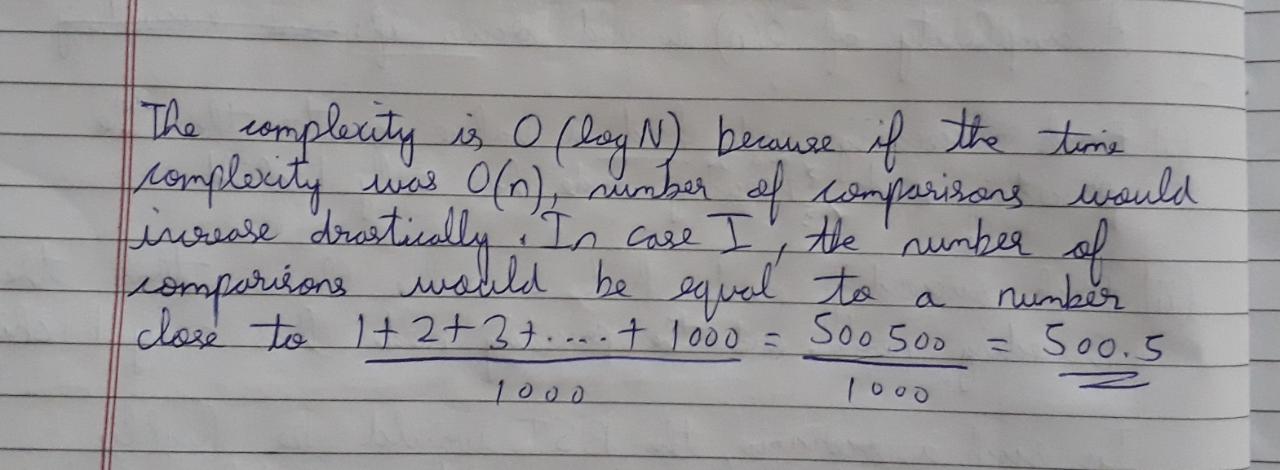 The complexity is O(log N) because if the time
complexity was O(n), number of comparisons would
increase drastically. In case I, the number of
comparisons would be equal to a number
close to 1+2+3+.....+ 1000 = 500500 = 500.5
1000 1000